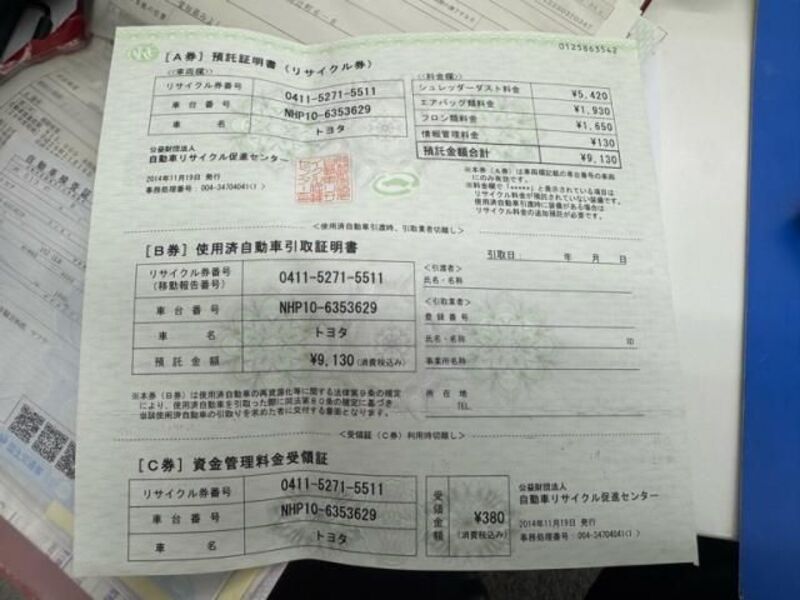 0125863542
[A券] 預託証明書 (リサイクル券)
<<車両欄>>
リサイクル券番号 0411-5271-5511
車台番号 NHP10-6353629
車名 トヨタ
公益財団法人
自動車リサイクル促進センター
2014年11月19日 発行
事務処理番号:004-34704041(1)
<<料金欄>>
シュレッダーダスト料金 ¥5,420
エアバッグ類料金 ¥1,930
フロン類料金 ¥1,650
情報管理料金 ¥130
預託金額合計 ¥9,130
※本券(A券)は車両欄記載の車台番号の車両
にのみ有効です。
※料金欄で「*****」と表示されている項目は
リサイクル料金が預託されていない装備です。
使用済自動車引渡時に装備がある場合は
リサイクル料金の追加預託が必要です。
<使用済自動車引渡時、引取業者切離し>
[B券] 使用済自動車引取証明書
リサイクル券番号
(移動報告番号) 0411-5271-5511
車台番号 NHP10-6353629
車名 トヨタ
預託金額 ¥9,130(消費税込み)
※本券(B券)は使用済自動車の再資源化等に関する法律第9条の規定
により、使用済自動車を引取った際に同法第80条の規定に基づき、
引取日: 年 月 日
<引渡者>
氏名・名称
<引取業者>
登録番号
氏名・名称 印
事業所名称
所在地
TEL
<受領証(C券)利用時切離し>
[C券] 資金管理料金受領証
リサイクル券番号 0411-5271-5511
車台番号 NHP10-6353629
車名 トヨタ
受領金額 ¥380
(消費税込み)
公益財団法人
自動車リサイクル促進センター
2014年11月19日 発行
事務処理番号:004-34704041(1)
自動車検査証